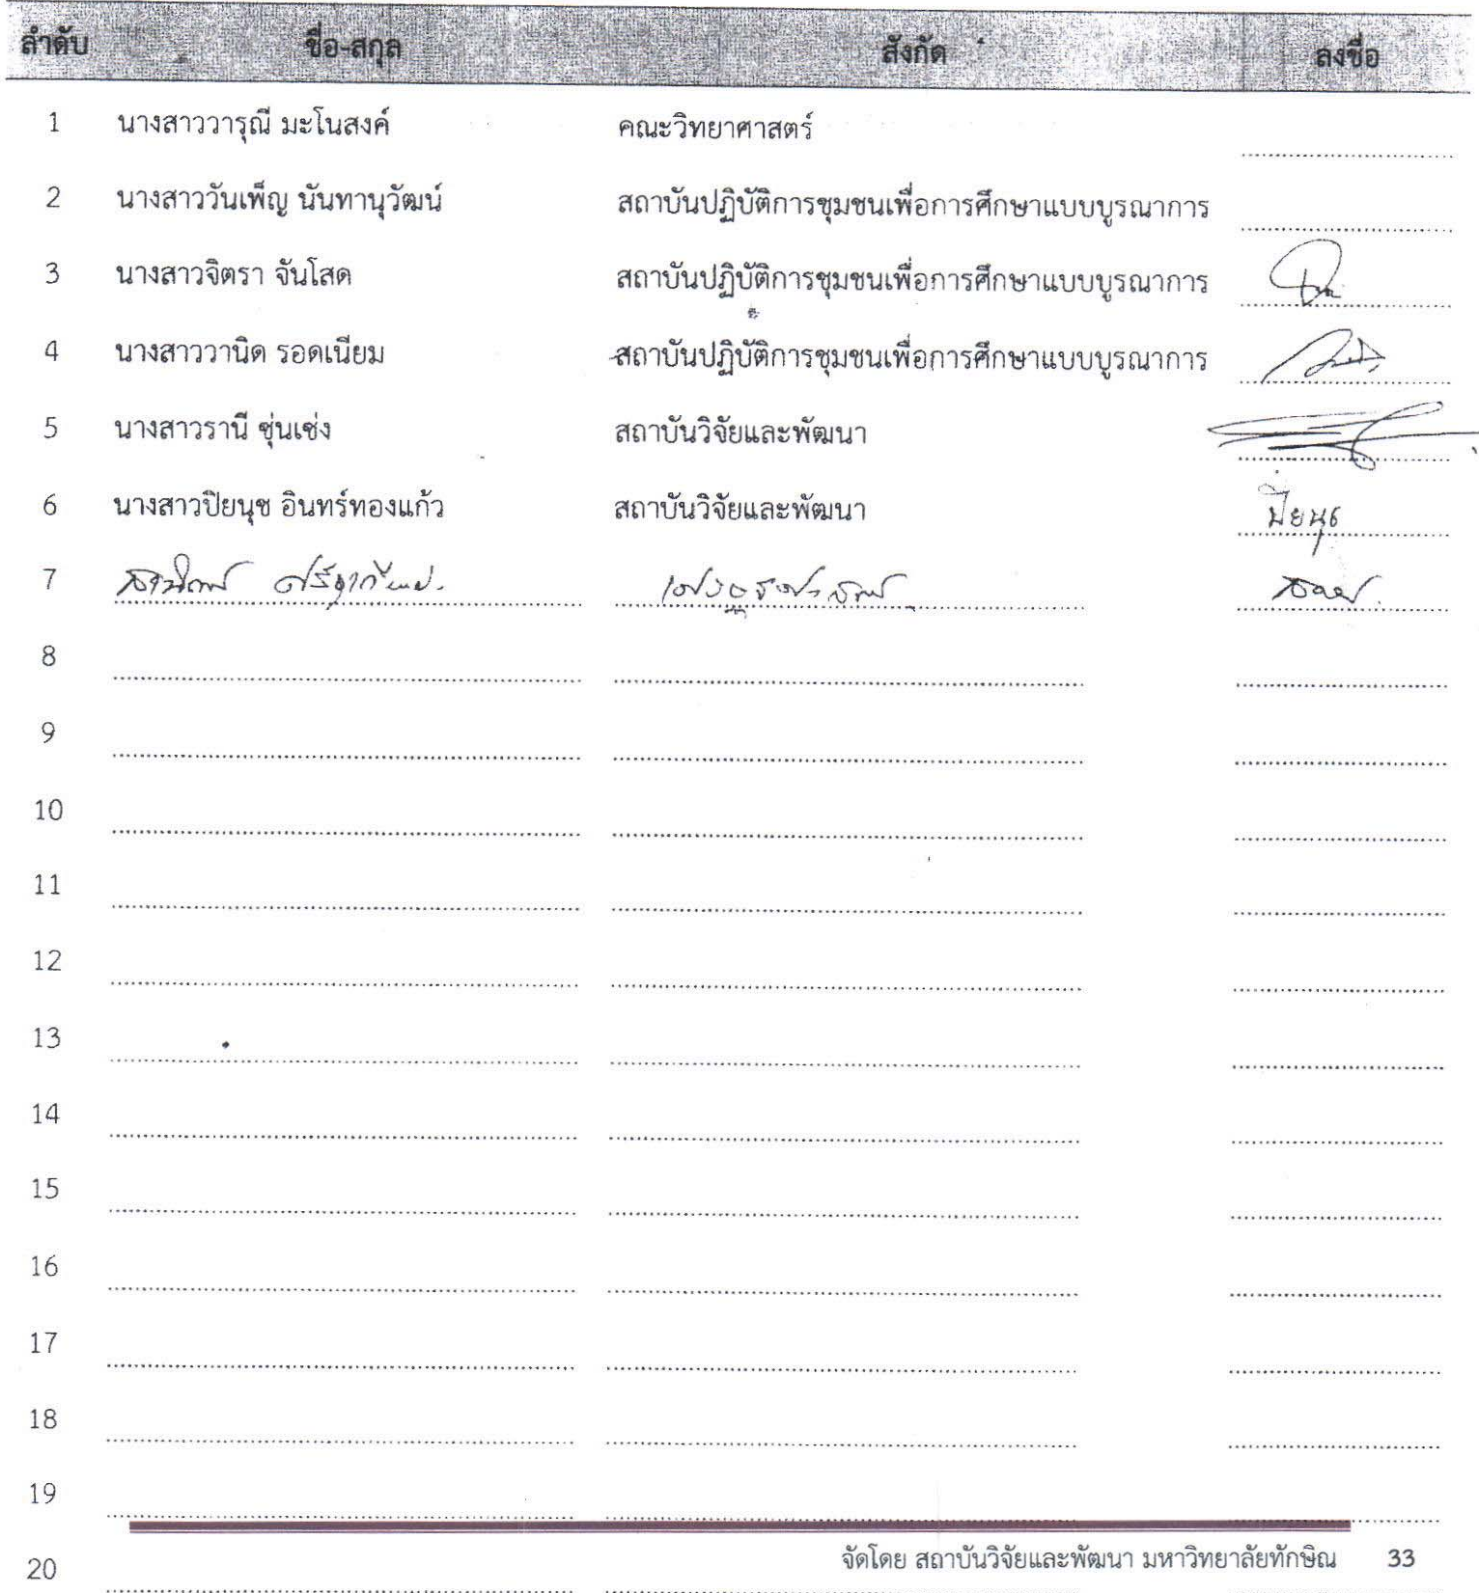 ลำดับ ชื่อ-สกุล สังกัด ลงชื่อ
1 นางสาววารุณี มะโนสงค์ คณะวิทยาศาสตร์
2 นางสาววันเพ็ญ นันทานุวัฒน์ สถาบันปฏิบัติการชุมชนเพื่อการศึกษาแบบบูรณาการ
3 นางสาวจิตรา จันโสด สถาบันปฏิบัติการชุมชนเพื่อการศึกษาแบบบูรณาการ
4 นางสาววานิด รอดเนียม สถาบันปฏิบัติการชุมชนเพื่อการศึกษาแบบบูรณาการ
5 นางสาวรานี ซุ่นเซ่ง สถาบันวิจัยและพัฒนา
6 นางสาวปิยนุช อินทร์ทองแก้ว สถาบันวิจัยและพัฒนา ปิยนุช
7
8
9
10
11
12
13
14
15
16
17
18
19
จัดโดย สถาบันวิจัยและพัฒนา มหาวิทยาลัยทักษิณ 33
20